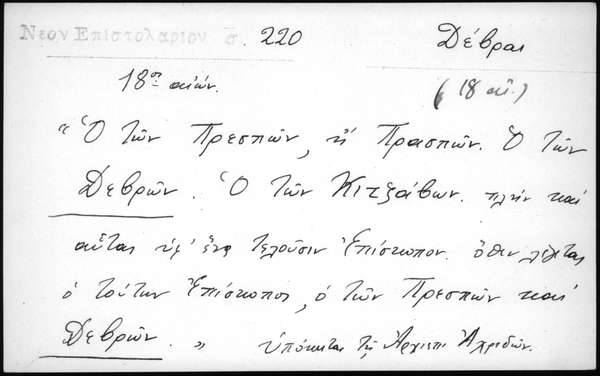 Νεον Επιστολαριον σ. 220 Δέβραι
18ος αιών. (18 αἰ.)
"Ὁ τῶν Πρεσπῶν, ἢ Πρασπῶν. Ὁ τῶν
Δεβρῶν. Ὁ τῶν Κιτζάβων. πλὴν καὶ
αὗται ὑφ' ἕνα τελοῦσιν Ἐπίσκοπον. ὅθεν λέγεται
ὁ τούτων Ἐπίσκοπος, ὁ τῶν Πρεσπῶν καὶ
Δεβρῶν. " ὑπόκειται τῇ Ἀρχιεπι Ἀχριδῶν.